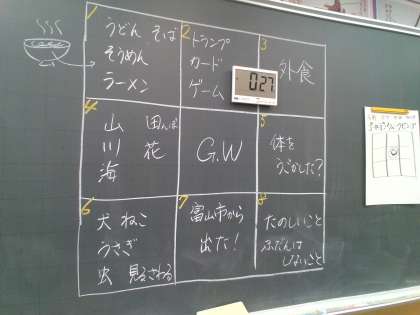 1
うどん そば
そうめん
ラーメン
2
トランプ
カード
ゲーム
3
外食
027
4
山 田んぼ
川 花
海
G.W
5
体を
うごかした？
6
犬 ねこ
うさぎ
虫 見る さわる
7
富山市から
出た！
8
たのしいこと
ふだんは
しないこと